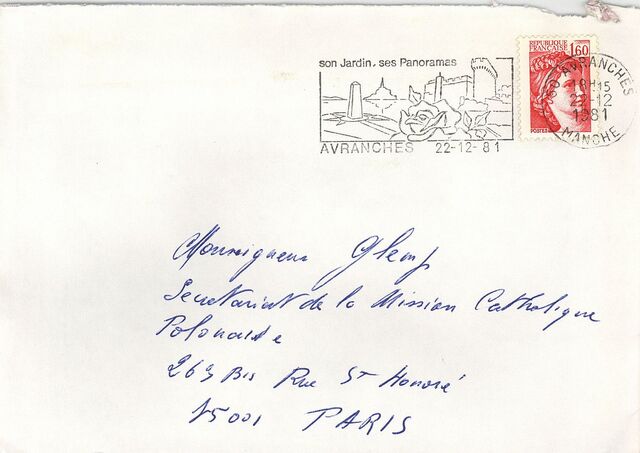 son Jardin, ses Panoramas
AVRANCHES 22-12-81
REPUBLIQUE
FRANCAISE
1,60
POSTES
AVRANCHES
18H15
22-12
1981
MANCHE
Monseigneur Glemp
Secretariat de la Mission Catholique
Polonaise
263 Bis Rue St Honoré
75001 PARIS